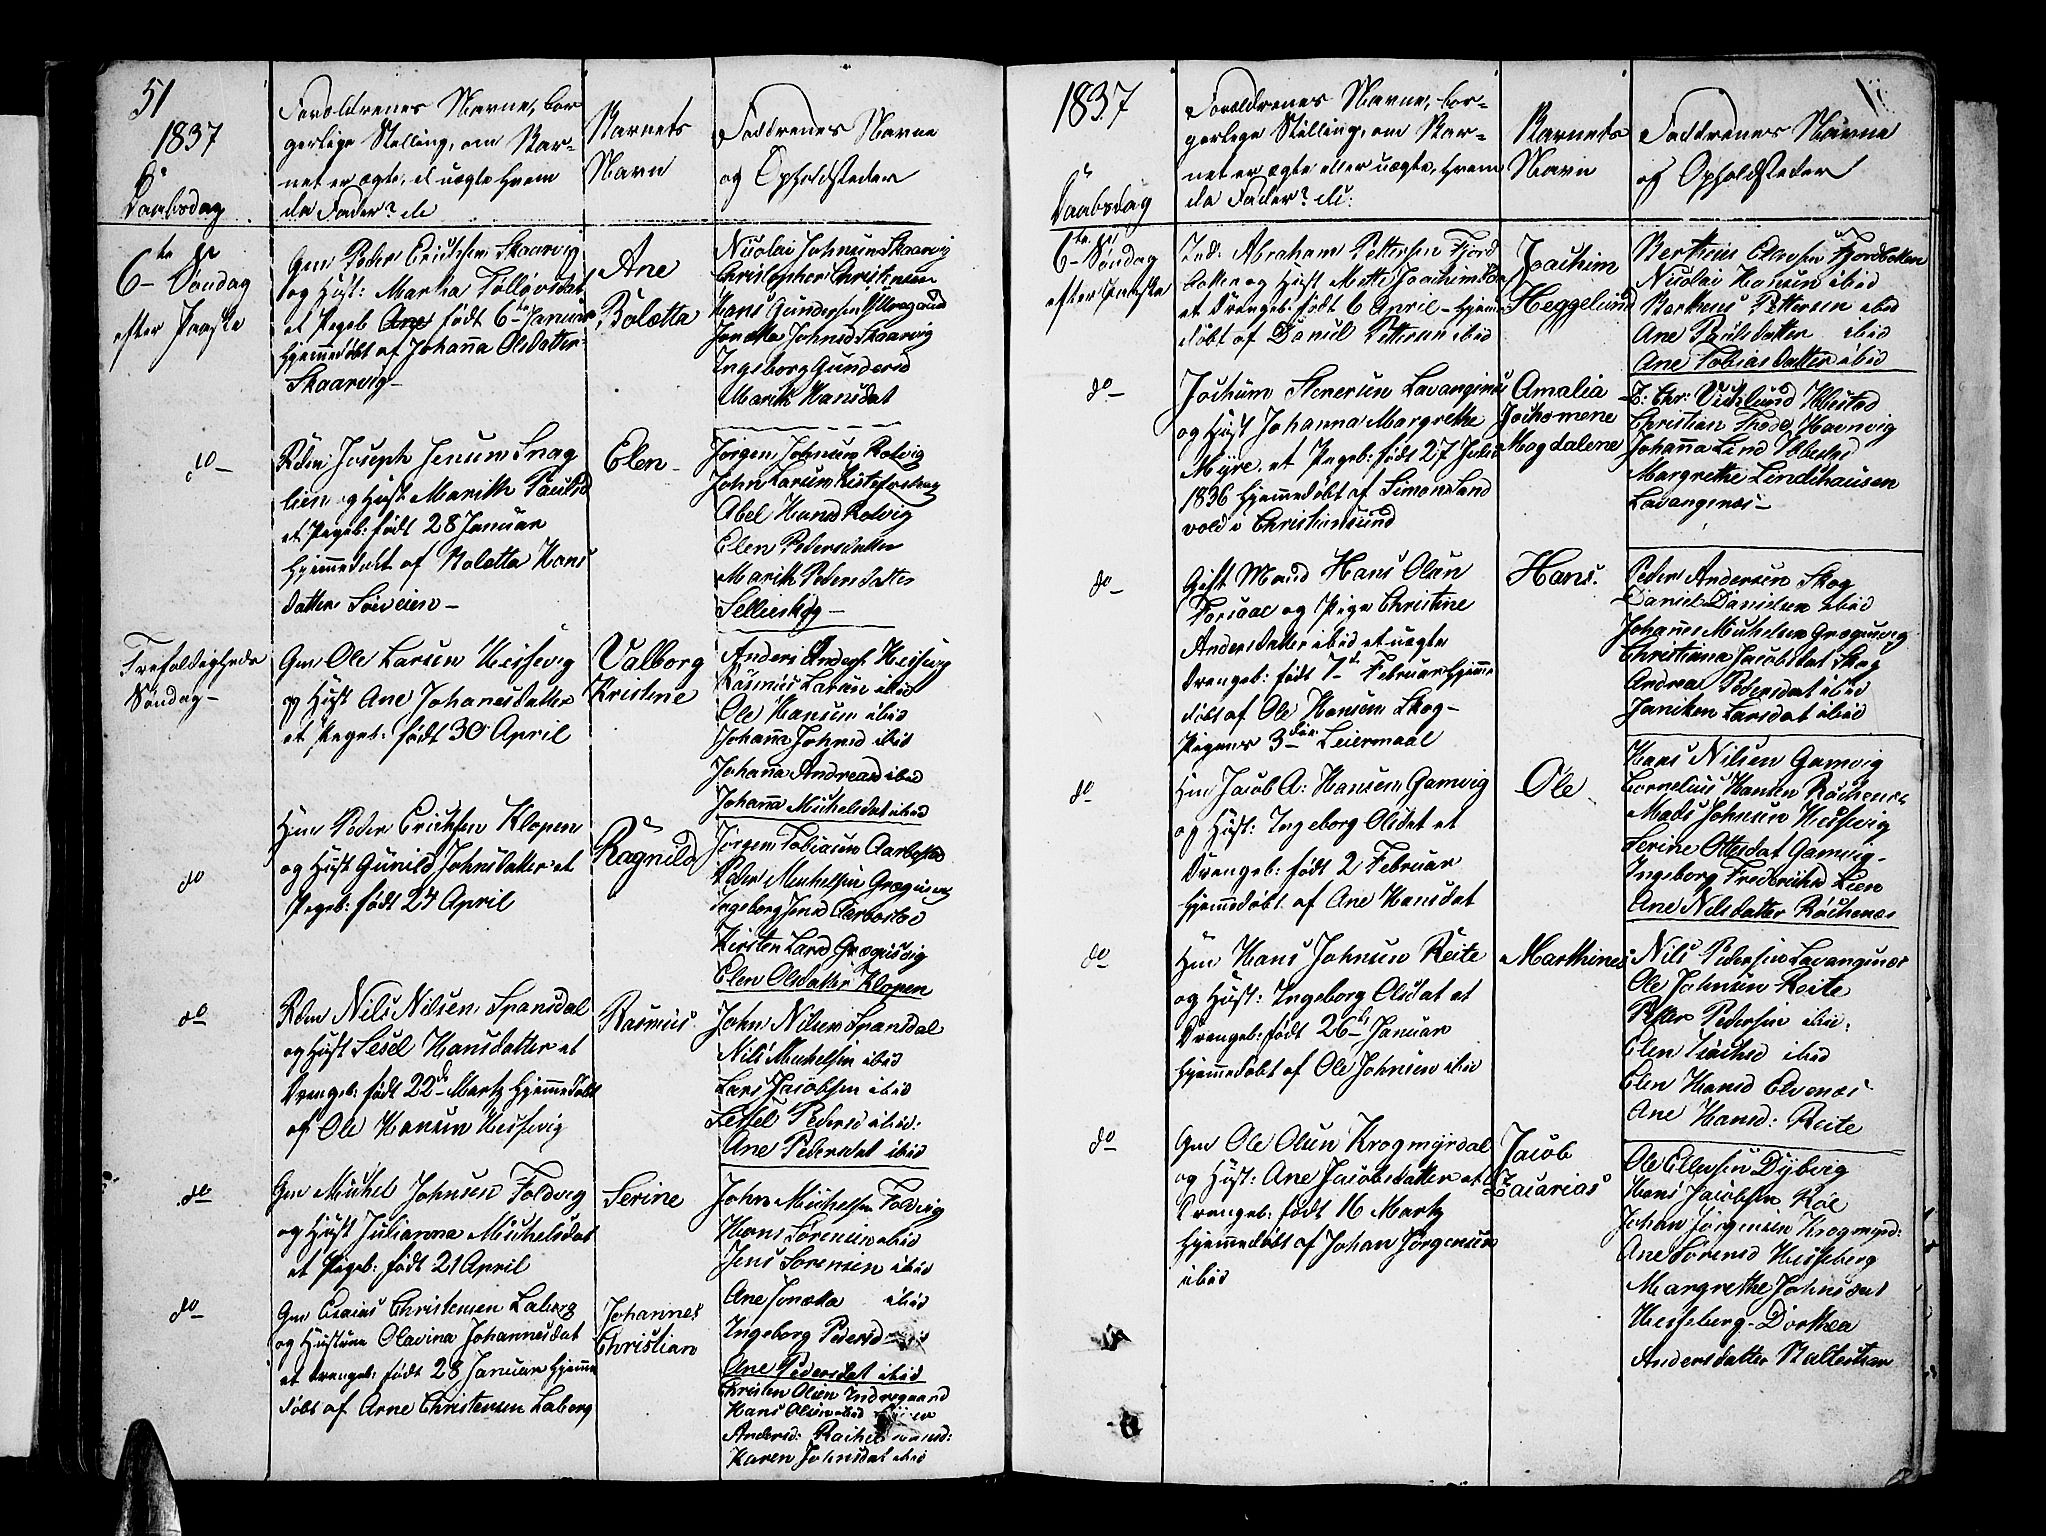 51
1837
Daabsdag
Forældrenes Navne, bor
gerlige Stilling, om Bar-
net er ægte, el uægte hvem
da Fader? &c
Barnets
Navn
Faddrenes Navne
og Opholdsteder
6te Søndag
efter Paaske
Gm Peder Erichsen Skaarvig
og Hust: Martha Tollevsdat
et Pigeb. Ane født 6te Januar
hjemmedøbt af Johanna Olsdatter
Skaarvig
Ane
Bolætta
Nicolai Johnsen Skaarvig
Christopher Christensen
Hans Gundersen
Jonetta Johnsd Skaarvig
Ingeborg Gundersd
Marith Hansdat
do
Rdm: Joseph Jensen Snag
lien og Hust Marith Paulsd
et Pigeb: født 28 Januar
hjemmedøbt af Bolette Hans
datter Søeveien
Elen
Jørgen Johnsen Rolvig
John Larsen
Abel Hansd Rolvig
Elen Pedersdatter
Marith Pedersdatter
Sellieskog
Trefoldigheds
Søndag
Gm Ole Larsen Hessevig
og Hust Ane Johanesdatter
et Pigeb: født 30 April
Valborg
Kristine
Anders Anders: Hessevig
Rasmus Larsen ibid
Ole Hansen ibid
Johanna Johnsd ibid
Johanna Andreasd ibid
Johanna Michelsdat ibid
do
Hm Peder Erichsen Klopen
og Hust Gunild Johnsdatter et
Pigeb: født 24 April
Ragnild
Jørgen Tobiasen Aarbostad
Peder Michelsen Grægusvig
Ingeborg Jensd Aarbostad
Kirsten Larsd Grægusvig
Elen Olsdatter Klopen
do
Rdm Nils Nilsen Spansdal
og Hust Sesel Hansdatter et
Drengeb: født 22de Martz hjemmedøbt
af Ole Hansen Hessevig
Rasmus
John Nilsen Spansdal
Nils Michelsen ibid
Lars Jacobsen ibid
Sessel Pedersd ibid:
Ane Pedersdat ibid
do
Gm Michel Johnsen Foldvig
og Hust Julianna Michelsdat
et Pigeb: født 21 April
Serine
John Michelsen Foldvig
Hans Sørensen ibid
Jens Sørensen ibid
Ane Jonetta ibid
Ingeborg Pedersd
Ane Pedersdat ibid
do
Gm Esaias Christensen Laberg
og Hustrue Olavina Johannesdat
et Drengeb: født 28 Januar hjemme
døbt af Arne Christensen Laberg
Johannes
Christian
Christen Olsen Indregaard
Hans Olsen ibid
Andersd: Rachel
Karen Johnsdat ibid
1837
Daabsdag
Forældrenes Navne, bor-
gerlige Stilling, om Bar-
net er ægte eller uægte, hvem
da Fader? &c:
Barnets
Navn
Faddrenes Navne
og Opholdsteder
6te Søndag
efter Paaske
Ind: Abraham Pettersen Fjord
botten og Hust Mette Joachimsdat
et Drengeb: født 6 April - hjemme
døbt af Daniel Pettersen ibid
Joachim
Heggelund
Berthius Olavsen Fjordbotten
Nicolai Hansen ibid
Berthius Pettersen ibid
Ane Povlsdatter ibid
Ane Tobiasdatter ibid
do
Jochum Stenersen Lavangsnæs
og Hust Johanna Margrethe
Myre, et Pigeb: født 27 Julii
1836 hjemmedøbt af Simon Sand
vold i Christiansund
Amalia
Jochomene
Magdalene
Christian Havnvig
Johanna Lind Ibbestad
Margrethe Lindshausen
Lavangsnæs
do
Gift Mand Hans Olsen
Forsaae og Pige Christine
Andersdatter ibid et uægte
Drengeb: født 7de Februar hjemme
døbt af Ole Hansen Skog
Pigens 3die Leiermaal
Hans
Peder Andersen Skog
Daniel Danielsen ibid
Johannes Michelsen Grægusvig
Christiana Jacobsdat Skog
Andrea Pedersdat ibid
Janiken Larsdat ibid
do
Hm Jacob A: Hansen Gamvig
og Hust: Ingeborg Olsdat et
Drengeb: født 2 Februar
hjemmedøbt af Ane Hansdat
Ole
Hans Nilsen Gamvig
Cornelius Hansen Rochenæs
Mads Johnsen Hessvig
Serine Ottesdat Gamvig
Ingeborg Fredrichsd Lien
Ane Nilsdatter Rochenæs
do
Hm Hans Johnsen Reite
og Hust: Ingeborg Olsdat et
Drengeb: født 26de Januar
hjemmedøbt af Ole Johnsen ibid
Marthines
Nils Pedersen Lavangsnæs
Ole Johnsen Reite
Petter Pedersen ibid:
Elen ibid
Elen Hansd Elvenæs
Ane Hansd: Reite
do
Gm Ole Olsen Krogmyrdal
og Hust: Ane Jacobsdatter et
Drengeb: født 16 Martz
hjemmedøbt af Johan Jørgensen
ibid
Jacob
Zacarias
Ole Ellevsen Dybvig
Hans Jacobsen Røe
Johan Jørgensen Krogmyrd:
Ane Sørensd Hesseberg
Margrethe Johnsdat
Hesseberg - Dorthea
Andersdatter